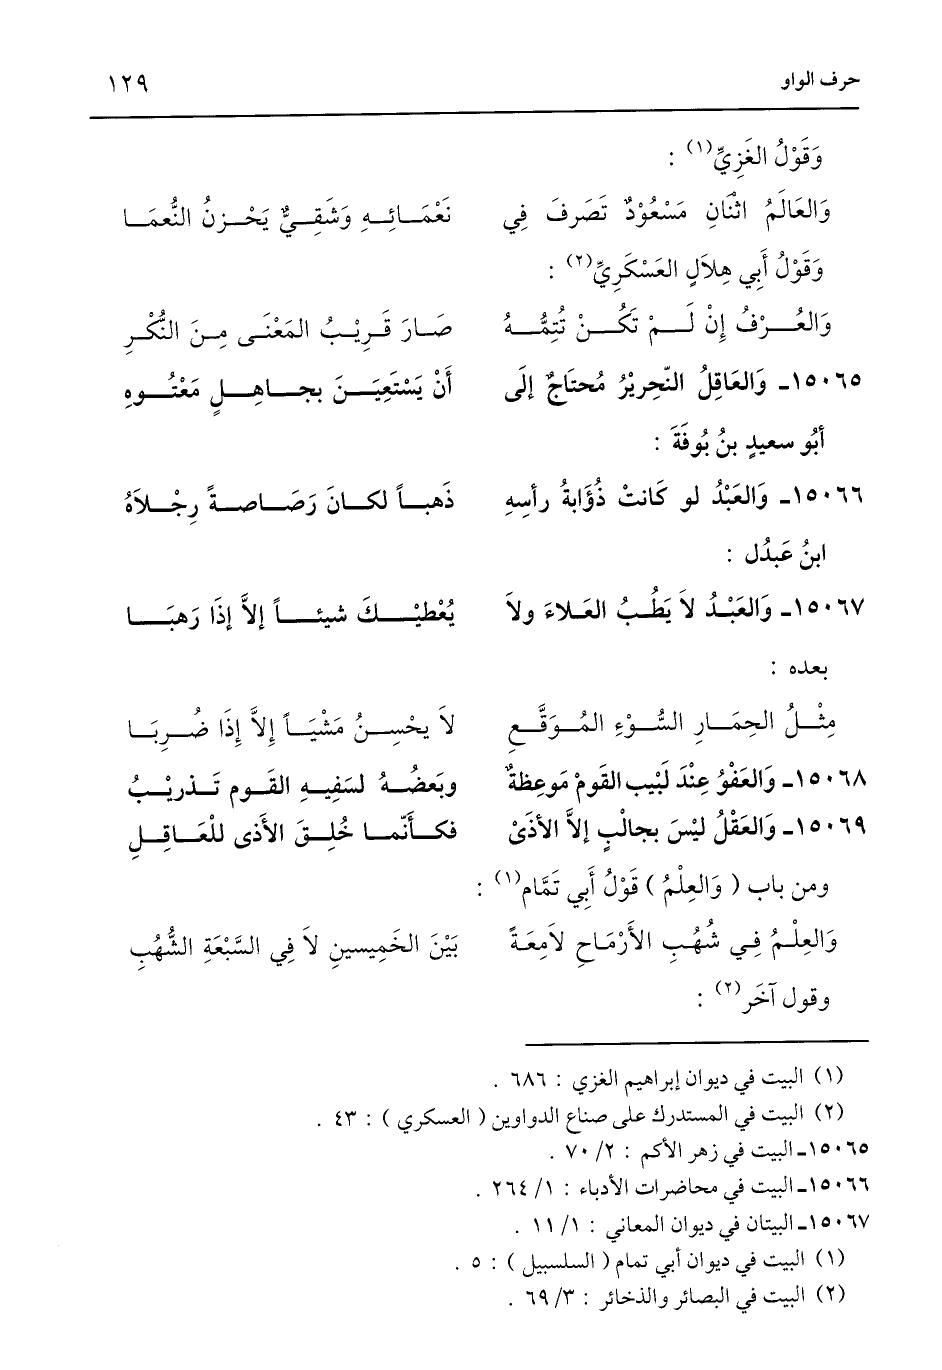 حرف الواو ١٢٩
وَقَوْلُ الغَزِيِّ(١) :
وَالعَالَمُ اثْنَانِ مَسْعُوْدٌ تَصَرفَ فِي نَعْمَـائِـهِ وَشَقِـيٌّ يَحْـزنُ النُّعمَـا
وَقَوْلُ أَبي هِلاَلٍ العَسْكَرِيِّ(٢) :
وَالعُـرْفُ إِنْ لَـمْ تَكُـنْ تُتِمُّـهُ صَـارَ قَـرِيْـبُ المَعْنَـى مِـنَ النُّكْـرِ
١٥٠٦٥ـ وَالعَاقِلُ النّحرِيْرُ مُحتَاجٌ إِلَى أَنْ يَسْتَعِيَـنَ بجـاهِـلٍ مَعْتُـوهِ
أبُو سعيدٍ بنُ بُوفَةَ :
١٥٠٦٦ـ وَالعَبْدُ لو كَانتْ ذُؤَابةُ رأسِهِ ذَهبـاً لكـانَ رَصَـاصـةً رِجْـلاَهُ
ابنُ عَبدُل :
١٥٠٦٧ـ وَالعَبْـدُ لاَ يَطْـبُ العَـلاءَ ولاَ يُعْطيْـكَ شيئـاً إلاَّ إِذَا رَهبَـا
بعده :
مِثْـلُ الحِمَـارِ السُّـوْءِ المُـوَقَّـعِ لاَ يحْسِـنُ مَشْيَـاً إِلاَّ إِذَا ضُـرِبَـا
١٥٠٦٨ـ وَالعَفْوُ عِنْدَ لَبْيب القَومْ مَوعِظةٌ وبَعضُـهُ لسَفِيـهِ القَـومِ تَـذرِيْـبُ
١٥٠٦٩ـ وَالعَقْلُ ليْسَ بجالْبٍ إلاَّ الأذَىْ فكـأَنّمـا خُلِـقَ الأذى للْعَـاقِـلِ
ومن باب ( وَالعِلْمُ ) قَوْلُ أَبي تَمَّام(١) :
وَالعِلْـمُ فِـي شُهُـبِ الأَرْمَـاحِ لاَمِعَـةً بَيْنَ الخَمِيسينِ لاَ فِي السَّبْعَةِ الشُّهُبِ
وقول آخَر(٢) :
(١) البيت في ديوان إبراهيم الغزي : ٦٨٦ .
(٢) البيت في المستدرك على صناع الدواوين ( العسكري ) : ٤٣ .
١٥٠٦٥ـ البيت في زهر الأكم : ٧٠/٢ .
١٥٠٦٦ـ البيت في محاضرات الأدباء : ٢٦٤/١ .
١٥٠٦٧ـ البيتان في ديوان المعاني : ١١/١ .
(١) البيت في ديوان أبي تمام ( السلسبيل ) : ٥ .
(٢) البيت في البصائر والذخائر : ٦٩/٣ .